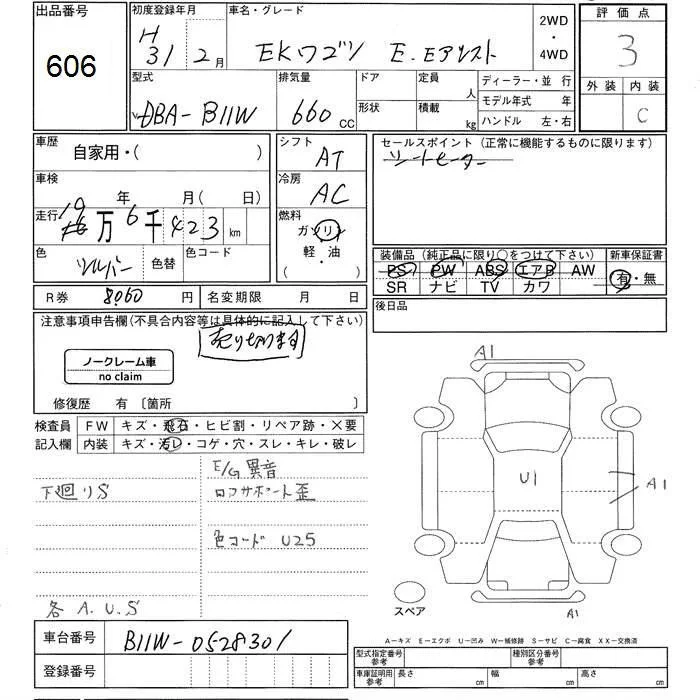 出品番号
606
初度登録年月
H 31 2月
車名・グレード
EKワゴン E.Eアシスト
2WD
・
4WD
評価点
3
外装 内装
C
型式
DBA-B11W
排気量
660 CC
ドア
形状
定員 人
積載 kg
ディーラー・並行
モデル年式 年
ハンドル 左・右
車歴
自家用・( )
シフト
AT
セールスポイント (正常に機能するものに限ります)
シートヒーター
車検
年 月( 日)
冷房
AC
走行
19万6千423 km
燃料
ガソリン
軽・油
・
色
シルバー
色替
色コード
装備品 (純正品に限り○をつけて下さい)
PS PW ABS エアB AW
SR ナビ TV カワ
新車保証書
有・無
R券 8060 円
名変期限 月 日
後日品
注意事項申告欄(不具合内容等は具体的に記入して下さい)
売り切ります
ノークレーム車
no claim
修復歴 有 〔箇所 〕
検査員
記入欄
FW キズ・飛石・ヒビ割・リペア跡・×要
内装 キズ・汚レ・コゲ・穴・スレ・キレ・破レ
下廻りS
E/G異音
ロアサポート歪
色コード U25
各 A.U.S
A1
U1
A1
A1
スペア
A-キズ E-エクボ U-凹み W-補修跡 S-サビ C-腐食 XX-交換済
車台番号
B11W-0528301
登録番号
型式指定番号
参考
種別区分番号
参考
車庫証明用
参考
長さ cm
幅 cm
高さ cm